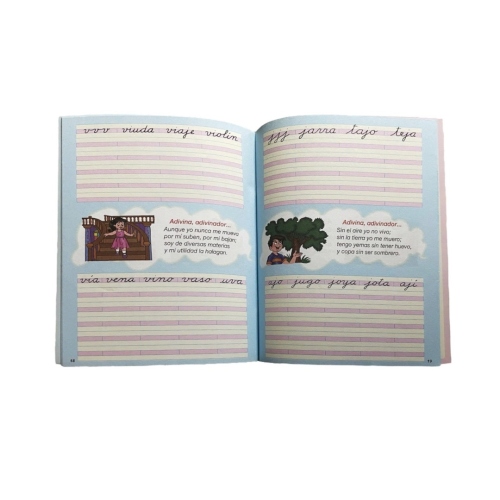 vvv viuda viaje violín
Adivina, adivinador...
Aunque yo nunca me muevo
por mí suben, por mí bajan;
soy de diversas materias
y mi utilidad la halagan.
vía vena vino vaso uva
jjj jarra tajo teja
Adivina, adivinador...
Sin el aire yo no vivo;
sin la tierra yo me muero;
tengo yemas sin tener huevo,
y copa sin ser sombrero.
ajo jugo joya jota ají